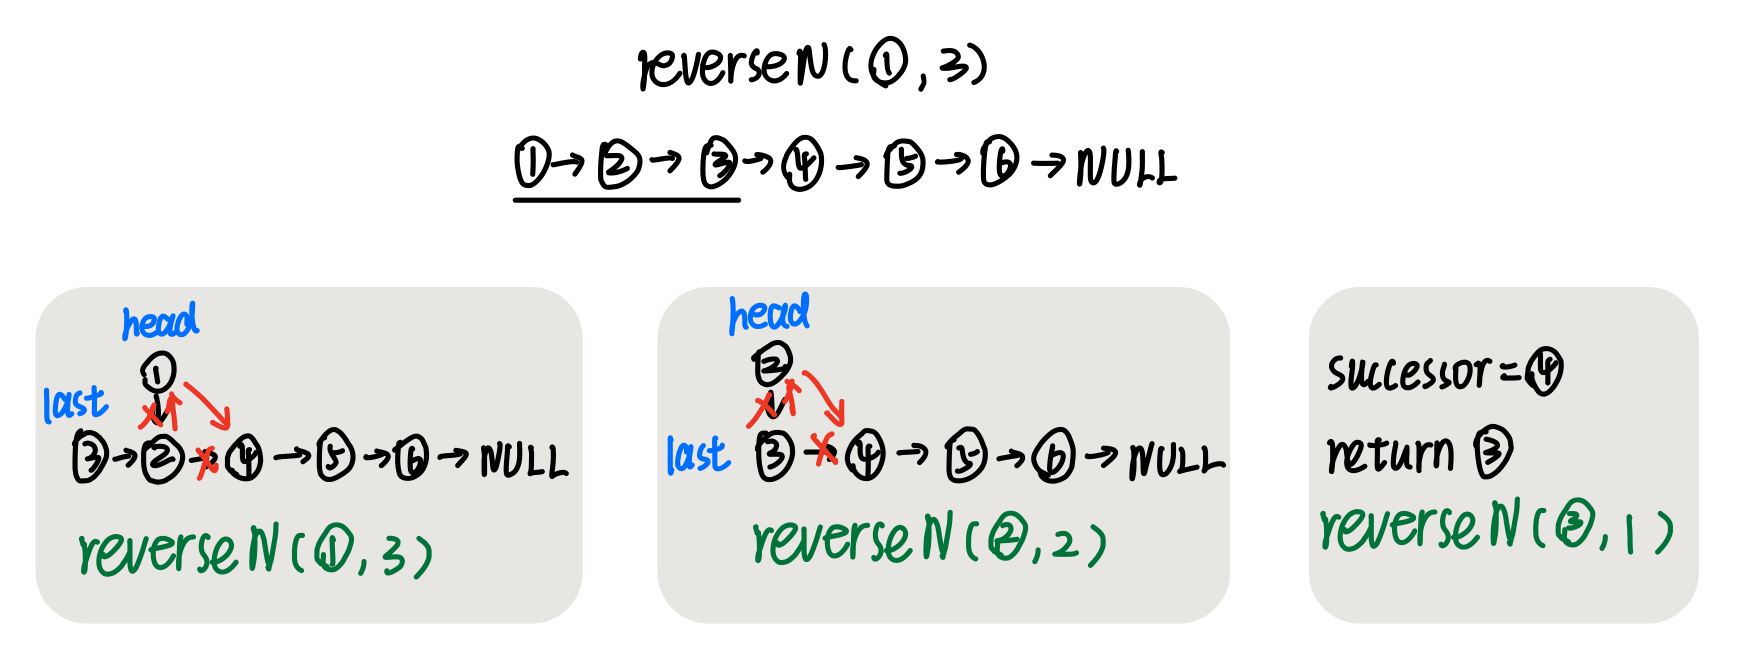 reverseN(①,3)
①→②→③→④→⑤→⑥→NULL
head
①
last
③→②→④→⑤→⑥→NULL
reverseN(①,3)
head
②
last ③→④→⑤→⑥→NULL
reverseN(②,2)
successor=④
return ③
reverseN(③,1)